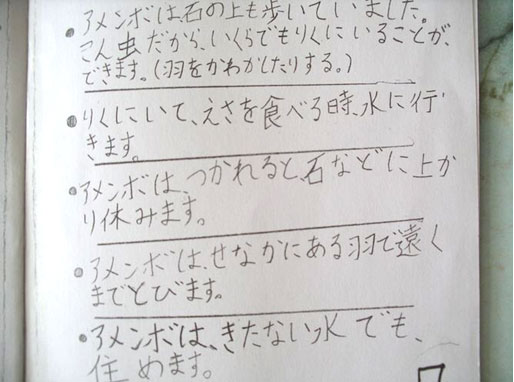 ・アメンボは石の上も歩いていました。
こん虫だから、いくらでもりくにいることが、
できます。(羽をかわかしたりする。)
・りくにいて、えさを食べる時、水に行
きます。
・アメンボは、つかれると、石などに上が
り休みます。
・アメンボは、せなかにある羽で遠く
までとびます。
・アメンボは、きたない水でも、
住めます。